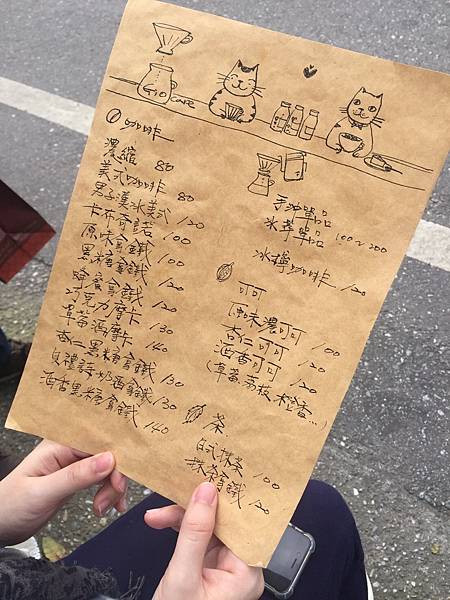 GIO CAFE
咖啡
濃縮 80
美式咖啡 80
男子漢冰美式 120
卡布奇諾 100
原味拿鐵 100
黑糖拿鐵 120
蜂蜜拿鐵 120
巧克力摩卡 130
草莓瑪摩卡 140
杏仁黑糖拿鐵 130
貝禮詩奶酒拿鐵 130
酒香黑糖拿鐵 140
手沖單品
冰滴單品 100~200
冰檸咖啡 120
可可
原味濃可可 100
杏仁可可 120
酒香可可 120
(草莓.荔枝.橙香...)
茶
日式抹茶 100
抹茶拿鐵 120